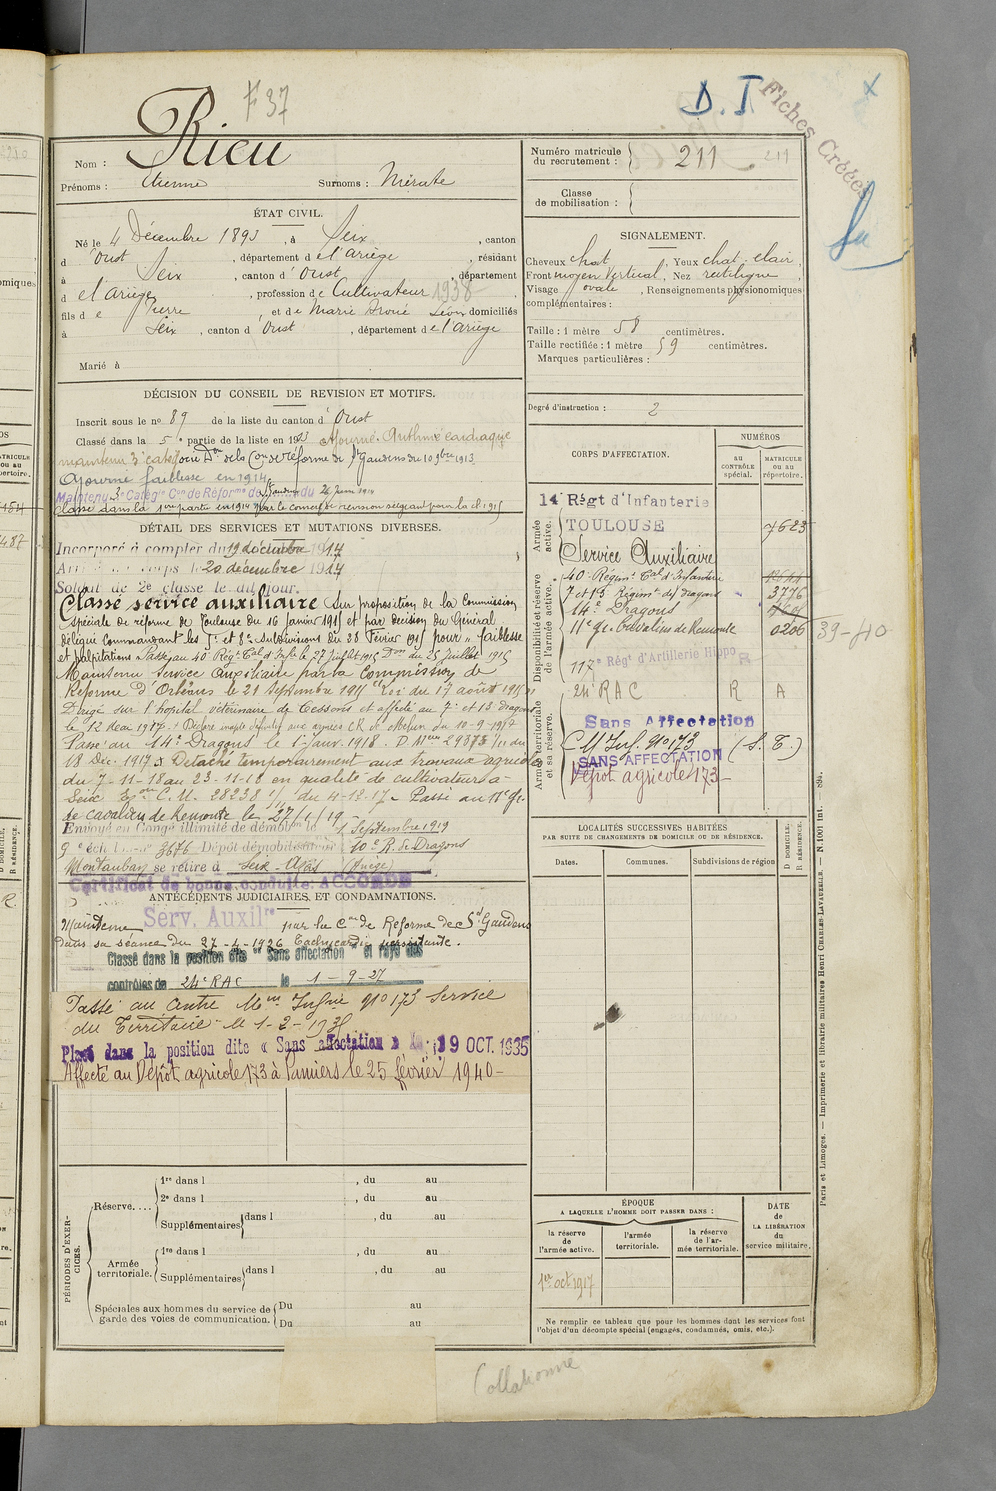 F 37
D. I
Fiches Créées
Rieu
Nom :
Prénoms : Etienne Surnoms : Mérate
Numéro matricule du recrutement : 211
Classe de mobilisation :
ÉTAT CIVIL.
Né le 4 Décembre 1893, à Seix, canton
d'Oust, département de l'ariège, résidant
à Seix, canton d'Oust, département
d el'ariège, profession de Cultivateur 1938
fils de Pierre et de Marie domiciliés
à Seix, canton d'Oust, département de l'ariège
Marié à
SIGNALEMENT.
Cheveux chat Yeux chat. clair,
Front moyen vertical, Nez rectiligne
Visage ovale, Renseignements physionomiques
complémentaires :
Taille : 1 mètre 58 centimètres.
Taille rectifiée : 1 mètre 59 centimètres.
Marques particulières :
Degré d'instruction : 2
DÉCISION DU CONSEIL DE REVISION ET MOTIFS.
Inscrit sous le no 89 de la liste du canton d'Oust
Classé dans la 5e partie de la liste en 1913 Ajourné. Arithmie cardiaque
maintenu 3e catég. Don de la Con de réforme de St Gaudens du 10 9bre 1913
Ajourné faiblesse en 1914
Maintenu 3e Catégie Con de Réforme de St Gaudens du 26 juin 1914
Classé dans la 1ere partie en 1914 par le conseil de revision siégeant pour la cl. 1915
DÉTAIL DES SERVICES ET MUTATIONS DIVERSES.
Incorporé à compter du 19 décembre 1914
Arrivé au corps le 20 décembre 1914
Soldat de 2e classe le dit jour.
Classé service auxiliaire sur proposition de la Commission
spéciale de réforme de Toulouse du 16 janvier 1915 et par décision du Général
délégué Commandant les 1e et 3e Subdivisions du 23 Février 1915 pour "faiblesse
et palpitations" Passé au 40e Régt Cal d'Infie le 27 juillet 1915 Don du 25 juillet 1915
Maintenu service auxiliaire par la Commission de
Réforme d'Orléans le 21 septembre 1915 Loi du 17 août 1915
Dirigé sur l'hopital vétérinaire de Cessons et affecté au 7e et 13e dragons
le 12 Mai 1917. Déclaré inapte définitif aux armées CR de Melun du 10-9-1917
Passé au 14e Dragons le 1er Janv. 1918. D. Mlle 29373 1/11 du
18 Déc. 1917. Détaché temporairement aux travaux agricoles
du 7-11-18 au 23-11-18 en qualité de cultivateur à
Seix C. M. 28238 1/ du 4-12-17. Passé au 11e Gr.
de cavaliers de Remonte le 27/1/19
Envoyé en Congé illimité de démobon le 1 Septembre 1919
9e échelon no 3676 Dépôt démobilisateur 10e R. de Dragons
Montauban se retire à Seix (Ariège)
Certificat de bonne conduite ACCORDÉ
ANTÉCÉDENTS JUDICIAIRES ET CONDAMNATIONS.
Maintenu Serv. Auxilre par la Con de Réforme de St Gaudens
dans sa séance du 27-4-1926 Tachycardie persistante.
Classé dans la position dite "Sans affectation" et rayé des
contrôles du 24e RAC le 1-9-27
Passé au Centre Mon Infrie No 173 Service
du Territoire le 1-2-19
Placé dans la position dite « Sans affectation » 19 OCT. 1935
Affecté au Dépôt agricole 173 à Pamiers le 25 février 1940-
CORPS D'AFFECTATION.
NUMÉROS
AU CONTRÔLE SPÉCIAL.
MATRICULE OU AU RÉPERTOIRE.
Armée active.
14 Régt d'Infanterie
TOULOUSE 7623
Service Auxiliaire
Disponibilité et réserve de l'armée active.
40e Régimt Cal d'Infanterie
7 et 13 Régimt de dragons 3776
14e Dragons
11e gr. Cavaliers de Remonte 0206 39-40
117e Régt d'Artillerie Hippo R
24e RAC R A
Armée territoriale et sa réserve.
Sans Affectation
C M Inf. No 173 (S. T.)
SANS AFFECTATION
Dépôt agricole 173-
LOCALITÉS SUCCESSIVES HABITÉES
PAR SUITE DE CHANGEMENTS DE DOMICILE OU DE RÉSIDENCE.
Dates. Communes. Subdivisions de région
D DOMICILE. R RÉSIDENCE.
PÉRIODES D'EXERCICES.
Réserve....
1re dans l , du au
2e dans l , du au
Supplémentaires dans l , du au
Armée territoriale.
1re dans l , du au
Supplémentaires dans l , du au
Spéciales aux hommes du service de garde des voies de communication.
Du au
Du au
ÉPOQUE
A LAQUELLE L'HOMME DOIT PASSER DANS :
la réserve de l'armée active.
l'armée territoriale.
la réserve de l'armée territoriale.
DATE de LA LIBÉRATION du service militaire.
1er oct 1917
Ne remplir ce tableau que pour les hommes dont les services font
l'objet d'un décompte spécial (engagés, condamnés, omis, etc.).
Paris et Limoges. — Imprimerie et librairie militaires Henri CHARLES-LAVAUZELLE. — N. 1001 int.
Collationné